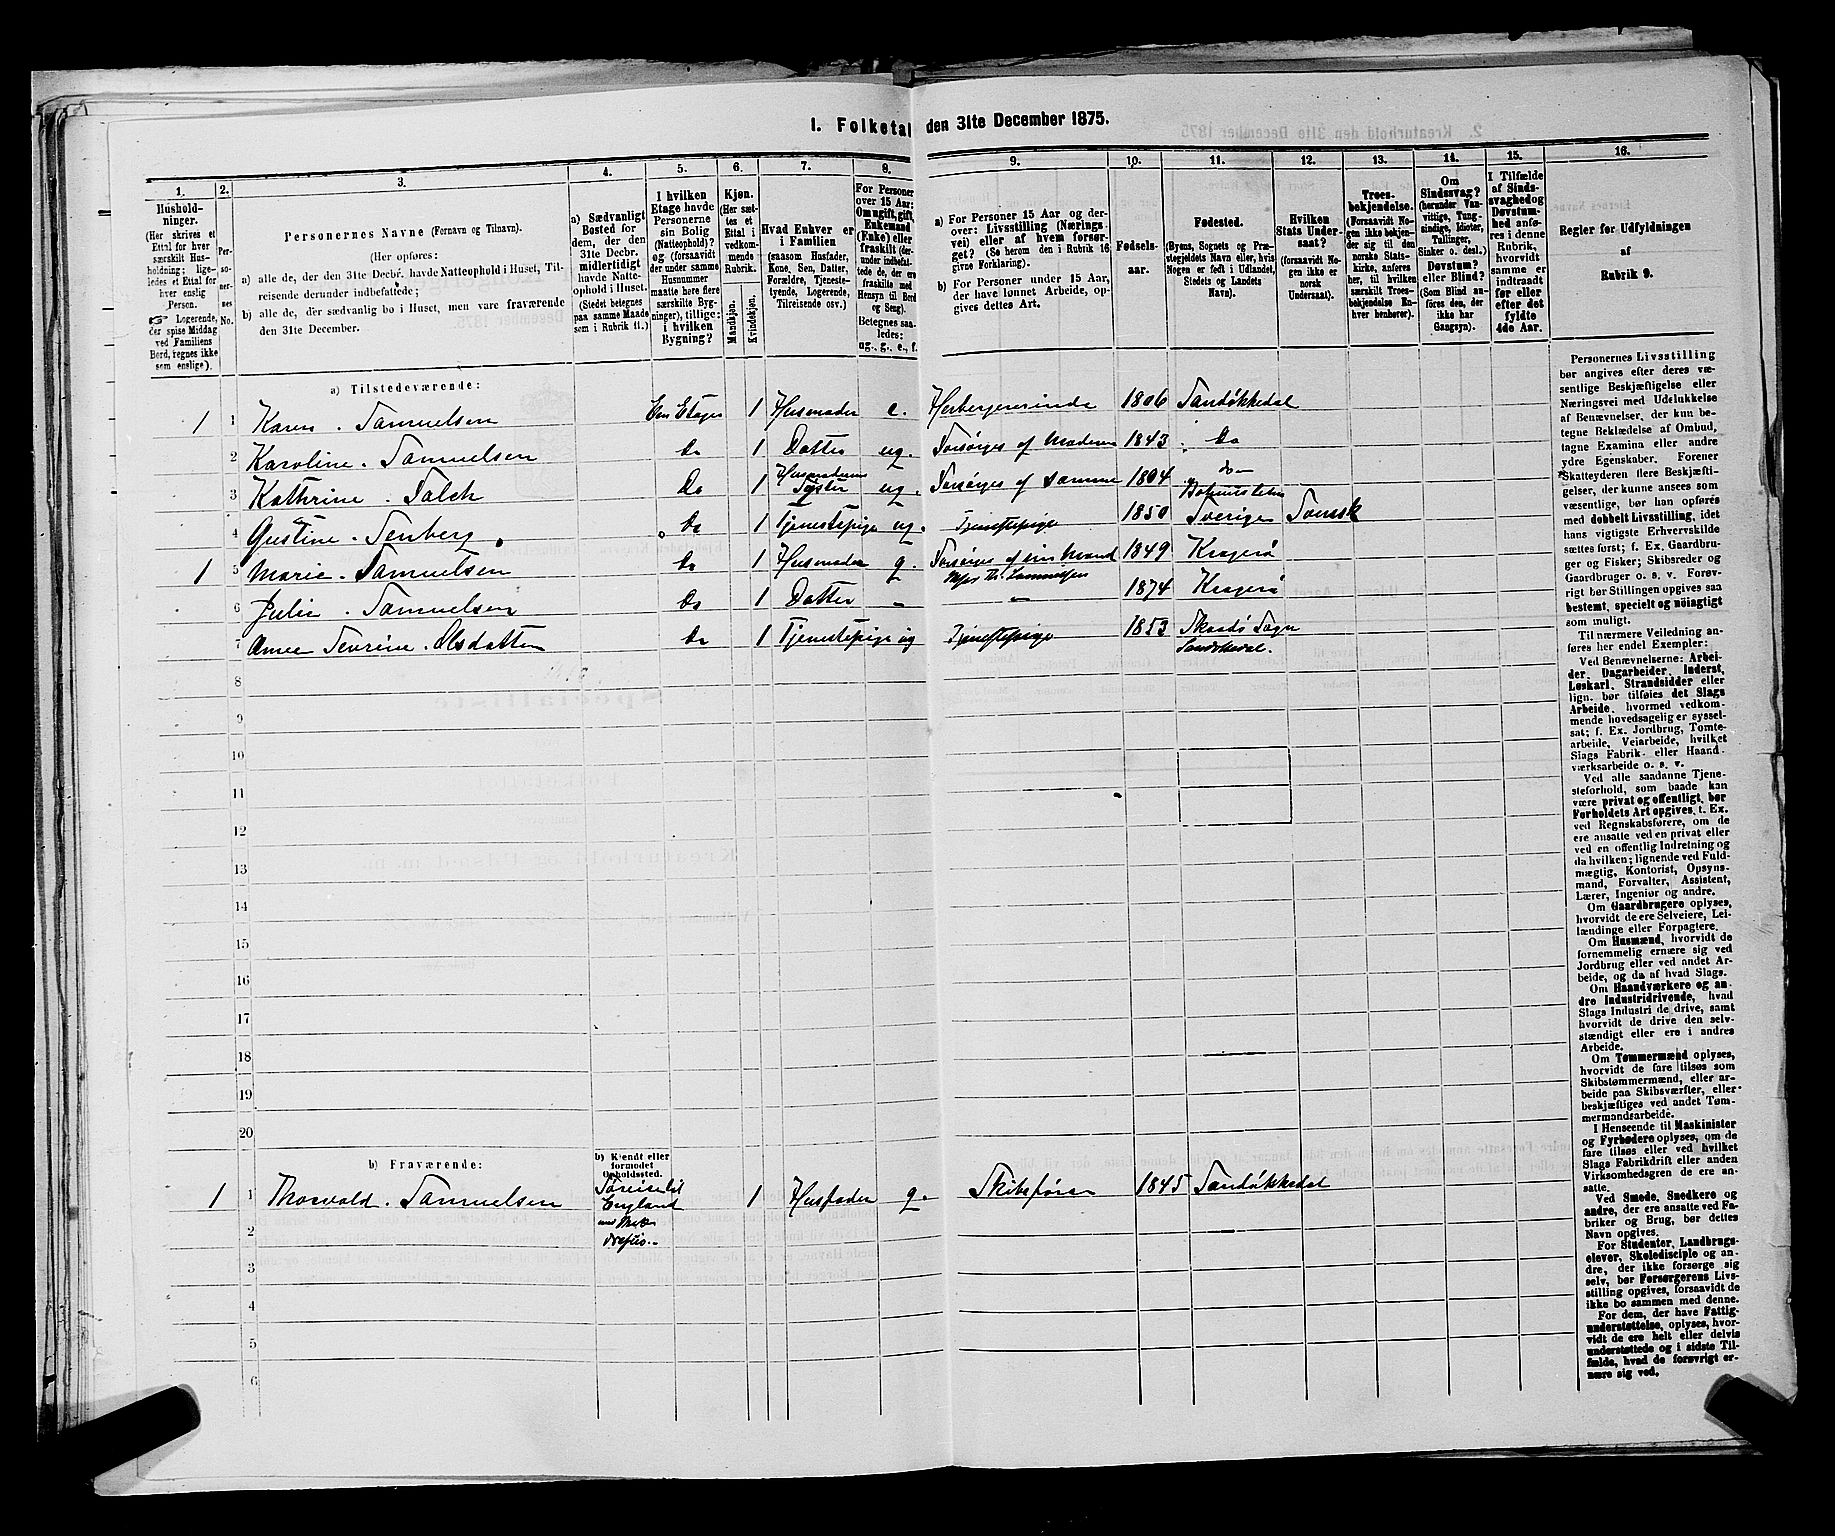 1. Folketal den 31te December 1875.
1. 2. 3. 4. 5. 6. 7. 8. 9. 10. 11. 12. 13. 14. 15. 16.
Hushold-
ninger.
(Her skrives et
Ettal for hver
særskilt Hus-
holdning; lige-
ledes et Ettal for
hver enslig
Person.
☞ Logerende,
der spise Middag
ved Familiens
Bord, regnes ikke
som enslige).
Per-
so-
ner-
nes
No.
Personernes Navne (Fornavn og Tilnavn).
(Her opføres:
a) alle de, der den 31te Decbr. havde Natteophold i Huset, Til-
reisende derunder indbefattede;
b) alle de, der sædvanlig bo i Huset, men vare fraværende
den 31te December.
a) Sædvanligt
Bosted for
dem, der den
31te Decbr.
midlertidigt
havde Natte-
ophold i Huset.
(Stedet betegnes
paa samme Maade
som i Rubrik 11.)
I hvilken
Etage havde
Personerne
sin Bolig
(Natteophold)?
og (forsaavidt
der under samme
Husnummer
maatte høre flere
særskilte Byg-
ninger), tillige:
i hvilken
Bygning?
Kjøn.
(Her sæt-
tes et
Ettal i
vedkom-
mende
Rubrik.
Mandkjøn.
Kvindekjøn.
Hvad Enhver er
i Familien
(saasom Husfader,
Kone, Søn, Datter,
Forældre, Tjeneste-
tyende, Logerende,
Tilreisende osv.)
For Personer
over 15 Aar:
Om ugift, gift,
Enkemand
(Enke) eller
fraskilt (der-
under indbefat-
tede de, der ere
fraskilte med
Hensyn til Bord
og Seng).
Betegnes saa-
ledes:
ug., g., e., f.
a) For Personer 15 Aar og der-
over: Livsstilling (Nærings-
vei) eller af hvem forsør-
get? (Se herom den i Rubrik 16
givne Forklaring).
b) For Personer under 15 Aar,
der have lønnet Arbeide, op-
gives dettes Art.
Fødsels-
aar.
Fødested.
(Byens, Sognets og Præ-
stegjeldets Navn eller, hvis
Nogen er født i Udlandet,
Stedets og Landets
Navn).
Hvilken
Stats Under-
saat?
(forsaavidt No-
gen ikke er
norsk
Undersaat).
Troes-
bekjendelse.
(Forsaavidt No-
gen ikke bekjen-
der sig til den
norske Stats-
kirke, anføres
her, til hvilken
særskilt Troes-
bekjendelse En-
hver henhører).
Om
Sindssvag?
(herunder Van-
vittige, Tung-
sindige, Idioter,
Tullinger,
Sinker o. desl.)
Døvstum?
eller Blind?
(Som Blind an-
føres den, der
ikke har
Gangsyn).
I Tilfælde
af Sinds-
svaghed og
Døvstum-
hed anfø-
res i denne
Rubrik,
hvorvidt
samme er
indtraadt
før eller
efter det
fyldte
4de Aar.
Regler for Udfyldningen
af
Rubrik 9.
a) Tilstedeværende:
1 1 Karen. Samuelsen En Etages 1 Husmoder e. Herbergererinde 1806 Sandøkkedal
2 Karoline. Samuelsen Do 1 Datter ug. Forsørges af Moderen 1843 Do
3 Kathrine. Falch Do 1 Husmoderens Søster ug. Forsørges af samme 1804 do
4 Gustine. Tenberg Do 1 Tjenestepige ug. Tjenestepige 1850 Sverige Svensk
1 5 Marie. Samuelsen Do 1 Husmoder g. Forsørges af sin Mand 1849 Kragerø
6 Julie. Samuelsen Do 1 Datter – 1874 Kragerø
7 Anne Sevrine. Olsdatter Do 1 Tjenestepige ug Tjenestepige 1853 Skaatø Sogn
Sandøkedal.
8
9
10
11
12
13
14
15
16
17
18
19
20
b) Fraværende:
b) Kjendt eller
formodet
Opholdssted.
1 1 Thorvald. Samuelsen England 1 Husfader g. Skibsfører 1845 Sandøkkedal
2
3
4
5
6
Personernes Livsstilling
bør angives efter deres væ-
sentlige Beskjæftigelse eller
Næringsvei med Udelukkelse
af Benævnelser, der kun be-
tegne Beklædelse af Ombud,
tagne Examina eller andre
ydre Egenskaber. Forener
Skatteyderen flere Beskjæfti-
gelser, der kunne ansees som
væsentlige, bør han opføres
med dobbelt Livsstilling, idet
hans vigtigste Erhvervskilde
sættes først; f. Ex. Gaardbru-
ger og Fisker; Skibsreder og
Gaardbruger o. s. v. Forøv-
rigt bør Stillingen opgives saa
bestemt, specielt og nöiagtigt
som muligt.
Til nærmere Veiledning an-
føres her endel Exempler:
Ved Benævnelserne: Arbei-
der, Dagarbeider, Inderst,
Løskarl, Strandsidder eller
lign. bør tilføies det Slags
Arbeide, hvormed vedkom-
mende hovedsagelig er syssel-
sat; f. Ex. Jordbrug, Tomte-
arbeide, Veiarbeide, hvilket
Slags Fabrik- eller Haand-
værksarbeide o. s. v.
Ved alle saadanne Tjene-
steforhold, som baade kan
være privat og offentligt, bør
Forholdets Art opgives, t. Ex.
ved Regnskabsførere, om de
ere ansatte ved en privat eller
ved en offentlig Indretning og
da hvilken; lignende ved Fuld-
mægtig, Kontorist, Opsyns-
mand, Forvalter, Assistent,
Lærer, Ingeniør og andre.
Om Gaardbrugere oplyses,
hvorvidt de ere Selveiere, Lei-
lændinge eller Forpagtere.
Om Husmænd, hvorvidt de
fornemmelig ernære sig ved
Jordbrug eller ved andet Ar-
beide, og da af hvad Slags.
Om Haandværkere og an-
dre Industridrivende, hvad
Slags Industri de drive, samt
hvorvidt de drive den selv-
stændigt eller ere i andres
Arbeide.
Om Tømmermænd oplyses,
hvorvidt de fare tilsøs som
Skibstømmermænd, eller ar-
beide paa Skibsværfter, eller
beskjæftiges ved andet Tøm-
mermandsarbeide.
I Henseende til Maskinister
og Fyrbødere oplyses, om de
fare tilsøs eller ved hvilket
Slags Fabrikdrift eller anden
Virksomhedsgren de ere an-
satte.
Ved Smede, Snedkere og
andre, der ere ansatte ved Fa-
briker og Brug, bør dettes
Navn opgives.
For Studenter, Landbrugs-
elever, Skoledisciple og an-
dre, der ikke forsørge sig
selv, bør Forsørgerens Livs-
stilling opgives, forsaavidt de
ikke bo sammen med denne.
For dem, der have Fattig-
understøttelse, oplyses, hvor-
vidt de ere helt eller delvis
understøttede og i sidste Til-
fælde, hvad de forøvrigt er-
nære sig ved.